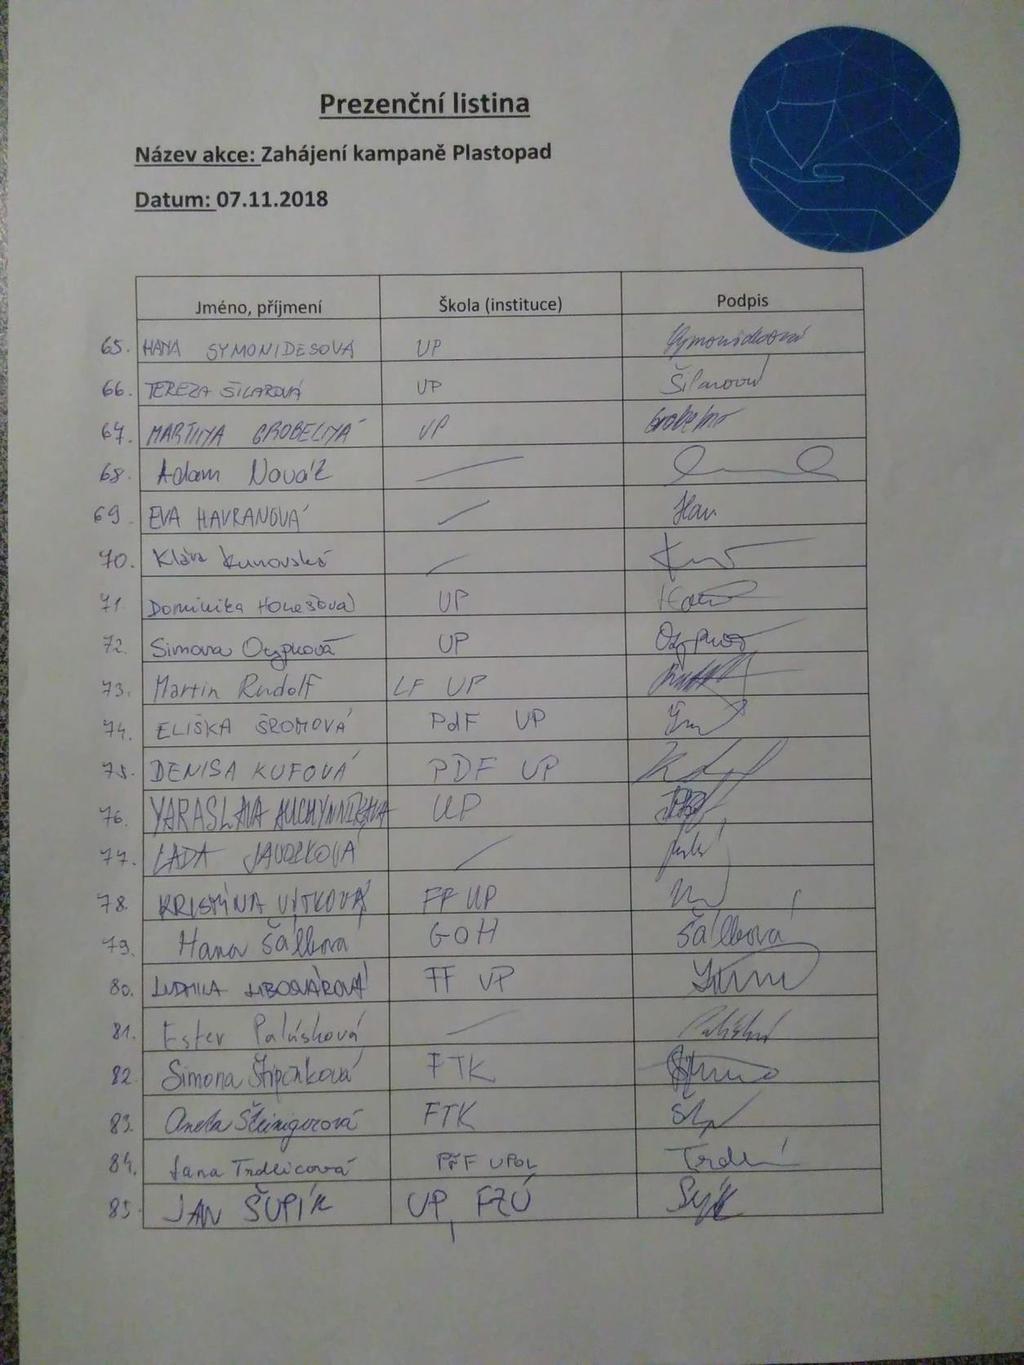 Prezenční listina
Název akce: Zahájení kampaně Plastopad
Datum: 07.11.2018
Jméno, příjmení Škola (instituce) Podpis
65. HANA SYMONIDESOVÁ UP Symonidesová
66. TEREZA ŠILAROVÁ UP Šilarová
67. MARTINA GROBELNÁ UP
68. Adam Novák
69. EVA HAVRANOVÁ Hav
70. Klára Kunovská
71. Dominika UP
72. Simona UP
73. Martin Rudolf LF UP
74. ELIŠKA ŠROMOVÁ PdF UP
75. DENISA KUFOVÁ PDF UP
76. YARASLAVA UP
77. LADA
78. KRISTÝNA VÝTKOVÁ FF UP
79. Hana Šálková GOH Šálková
80. LUDMILA LIBOSVÁROVÁ FF UP
81. Ester Palásková
82. Simona FTK
83. Aneta Šteinigerová FTK
84. Jana Trdlicová PřF UPOL
85. JAN ŠUPÍK UP, FZÚ